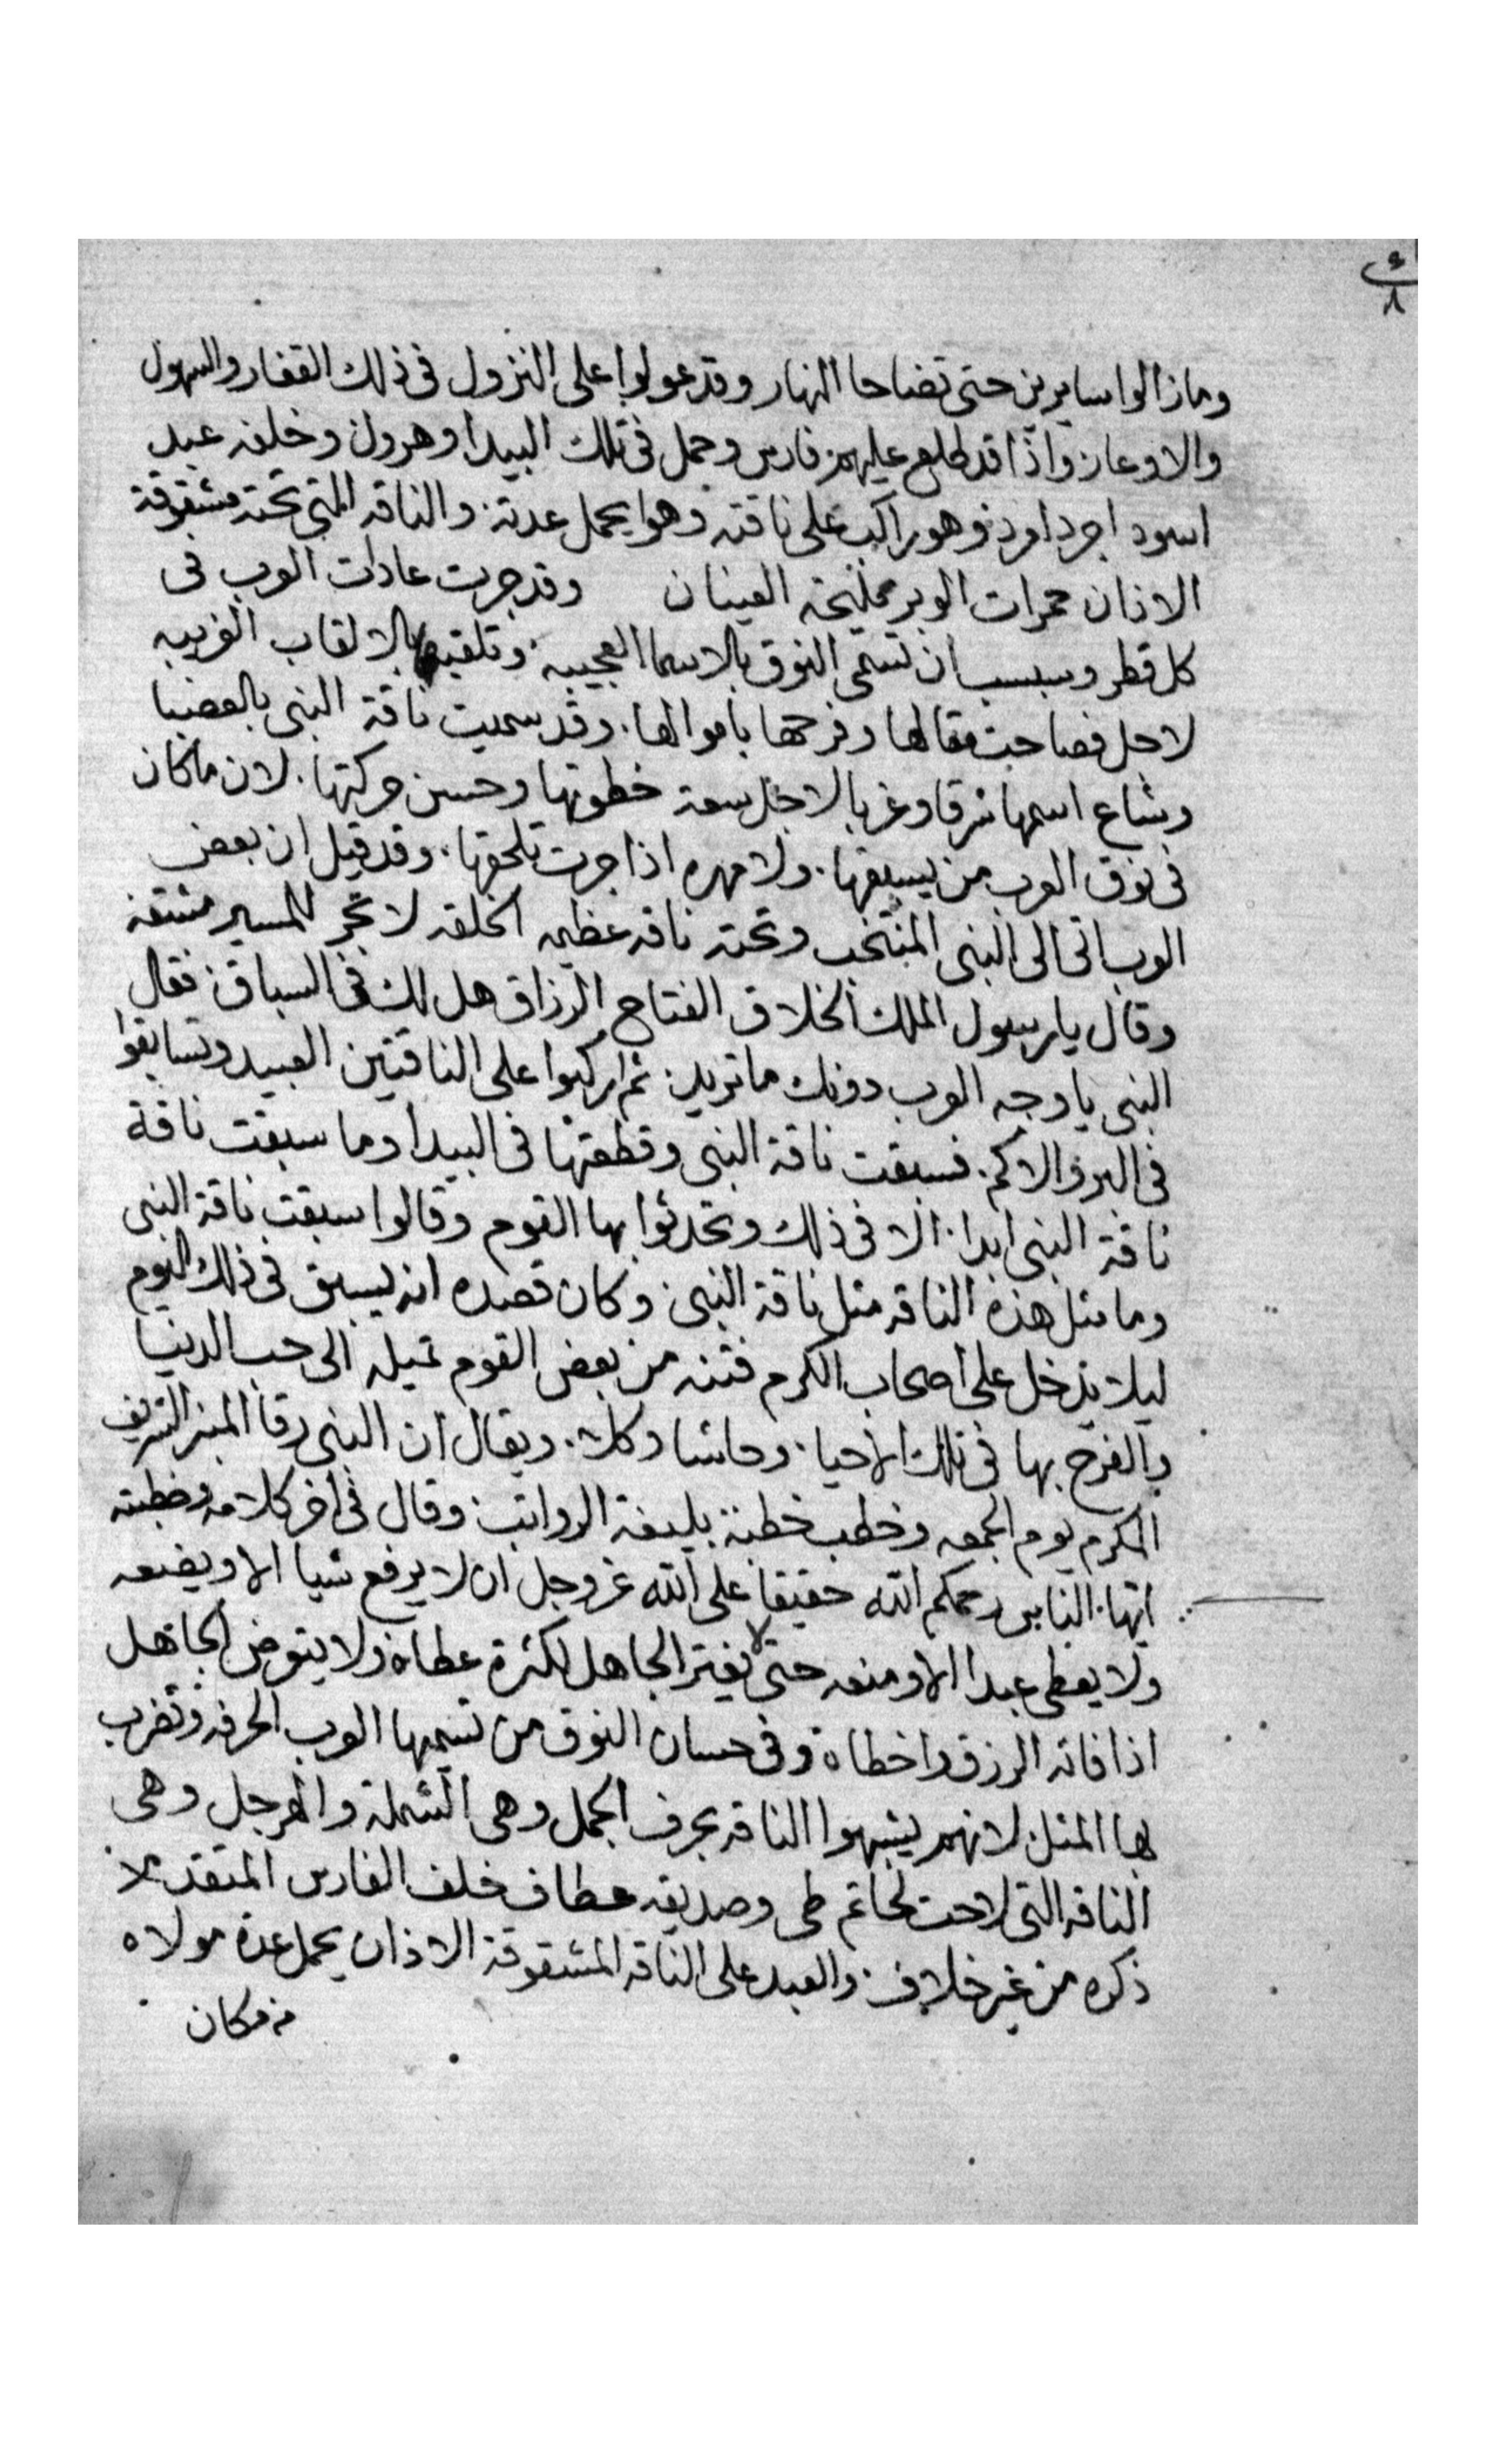 وما زالوا سايرين حتى تضاحا النهار وقد عولوا على النزول فى ذلك القفار والسهول
والاوعار واذا قد طلع عليهم فارس وحمل فى تلك البيدا وهرول وخلفه عبد
اسود اجرد امرد وهو راكب على ناقته وهوا يحمل عدته والناقه التى تحته مشقوقة
الاذان حمرات الوبر مليحة العينان وقد جرت عادات العرب فى
كل قطر وسبسب ان تسمى النوق بالاسما العجيبه وتلقبها بالالقاب الغريبه
لاجل فصاحت مقالها وفرحها باموالها وقد سميت ناقة النبى بالعضبا
وشاع اسمها شرقا وغربا لاجل سعة خطوتها وحسن حركتها لان ما كان
فى نوق العرب من يسبقها ولا مهره اذا جرت تلحقها وقد قيل ان بعض
العرب اتى الى النبى المنتخب وتحته ناقه عظيمه الخلقه لا تجر للمسير مشقه
وقال يا رسول الملك الخلاق الفتاح الرزاق هل لك فى السباق فقال
النبى يا وجه العرب دونك ما تريد ثم اركبوا على الناقتين العبيد وتسابقوا
فى البر والاكم فسبقت ناقة النبى وقطعتها فى البيدا وما سبقت ناقة
ناقة النبى ابدا الا فى ذلك وتحدثوا بها القوم وقالوا سبقت ناقة النبى
وما مثل هذه الناقه مثل ناقة النبى وكان قصده انه يسبق فى ذلك اليوم
ليلا يدخل على اصحاب الكرم فتنه من بعض القوم تميله الى حب الدنيا
والفرح بها فى تلك الاحيا وحاشا وكلا ويقال ان النبى رقا المنبر الشريف
المكرم يوم الجمعه وخطب خطبة بليغة وقال فى اخر كلامه وخطبته
ايها الناس رحمكم الله حقيقا على الله عز وجل ان لا يرفع شيا الا ويضعه
ولا يعطى عبدا الا ومنعه حتى لا يغتر الجاهل لكثرة عطاه ولا يتعرض الجاهل
اذا فاته الرزق واخطاه وفى حسان النوق من تسميها العرب الحرفه وتضرب
بها المثل لانهم يشبهوا الناقه بحرف الجمل وهى الشملة والهرجل وهى
الناقه التى لاحت لحاتم طى وصديقه عطاف خلف الفارس المتقدم لا
ذكره من غير خلاف والعبد على الناقه المشقوقة الاذان يحمل عدة مولاه
من مكان